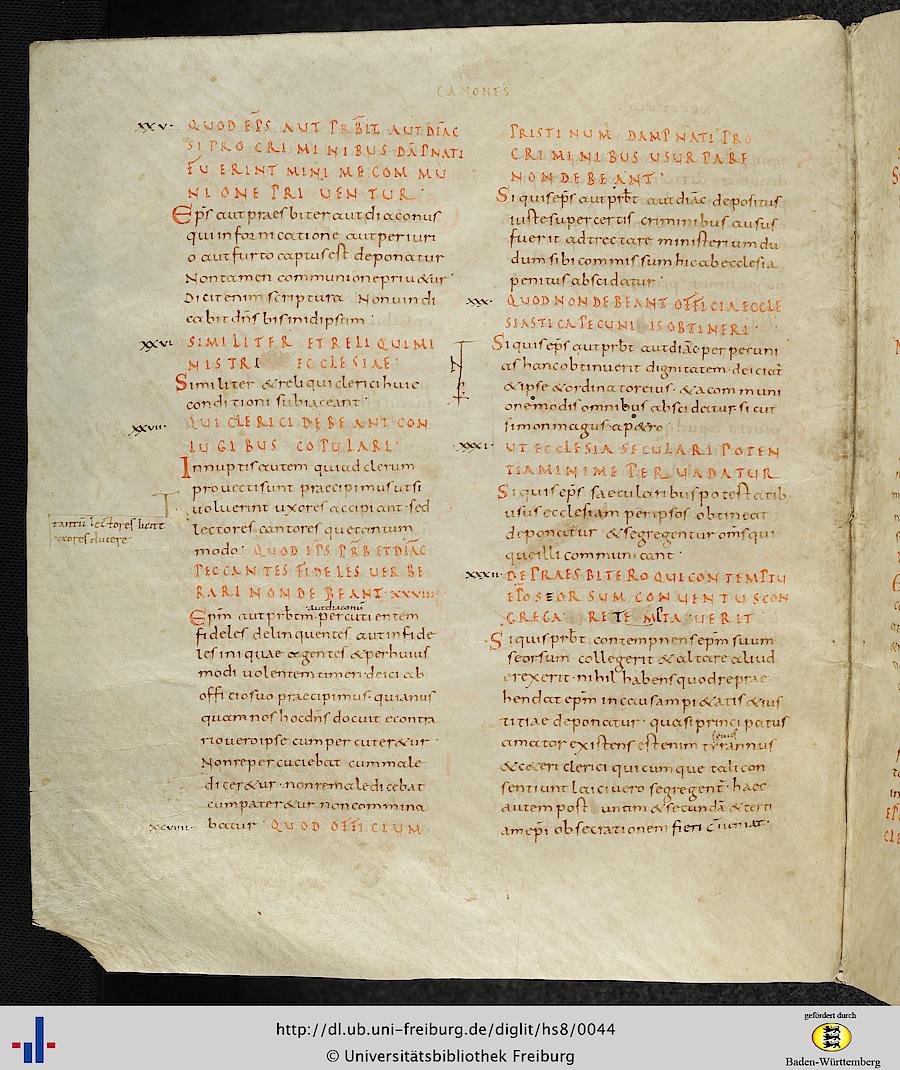 CANONES
XXV· QUOD EP̄S AUT PRB̄IT AUT DIĀC
SI PRO CRIMINIBUS DĀPNATI
FUERINT MINIME COMMU
NIONE PRIUENTUR·
Ep̄s aut praesbiter aut diaconus
qui in fornicatione aut periuri
o aut furto captus est deponatur
Non tamen communione priu&ur·
Dicit enim scriptura Non uindi
cabit dn̄s bis in idipsum·
XXVI· SIMILITER ET RELIQUI MI
NISTRI ECCLESIAE·
Similiter & reliqui clerici huic
conditioni subiaceant·
XXVII· QUI CLERICI DEBEANT CON
IUGIBUS COPULARI·
Innuptis autem qui ad clerum
prouecti sunt praecipimus ut si
uoluerint uxores accipiant sed
tantū lectores licet
uxores ducere
lectores cantores que tantum
modo· QUOD EP̄S PRB̄ ET DIĀC
PECCANTES FIDELES UERBE
RARI NON DEBEANT· XXVIII·
aut diaconū
Ep̄m aut prb̄tm· percutientem
fideles delinquentes aut infide
les inique agentes & per huius
modi uolentem timeri· deici ab
officio suo praecipimus· quia nus
quam nos hoc dn̄s docuit e contra
rio uero ipse cum percuter&ur
Non repercuciebat cum male
dicer&ur· non remaledicebat
cum pater&ur non commina
XXVIIII· batur· QUOD OFFICIUM
PRISTINUM DAMPNATI PRO
CRIMINIBUS USURPARE
NON DEBEANT·
Si quis ep̄s aut prb̄t aut diāc depositus
iuste super certis criminibus ausus
fuerit adtrectare ministerium du
dum sibi commissum hic ab ecclesia
penitus abscidatur·
XXX· QUOD NON DEBEANT OFFICIA ECCLE
SIASTICA PECUNIIS OBTINERI·
Si quis ep̄s aut prb̄t aut diāc per pecuni
as hanc obtinuerit dignitatem· deiciat̄
& ipse & ordinator eius· & a communi
one modis omnibus abscidatur· sicut
simon magus· a p&ro·
XXXI· UT ECCLESIA SECULARI POTEN
TIA MINIME PERUADATUR
Si quis ep̄s saecularibus potestatib;
usus ecclesiam per ipsos obtineat
deponatur & segregentur om̄s qui
que illi communicant·
XXXII· DE PRAESBITERO QUI CONTEMPTU
EP̄O SEORSUM CONUENTUS CON
GREGARE TEMPTAUERIT
Si quis prb̄t contempnens ep̄m suum
seorsum collegerit & altare aliud
erexerit· nihil habens quod repre
hendat ep̄m in causa pi&atis & ius
titiae deponatur· quasi principatus
amator existens est enim tyrannus
& c&eri clerici quicumque tali con
sentiunt laici uero segregent̄· haec
autem post unam & secundā & terti
am ep̄i obsecrationem fieri c̄ueniat·
http://dl.ub.uni-freiburg.de/diglit/hs8/0044
© Universitätsbibliothek Freiburg
gefördert durch
Baden-Württemberg